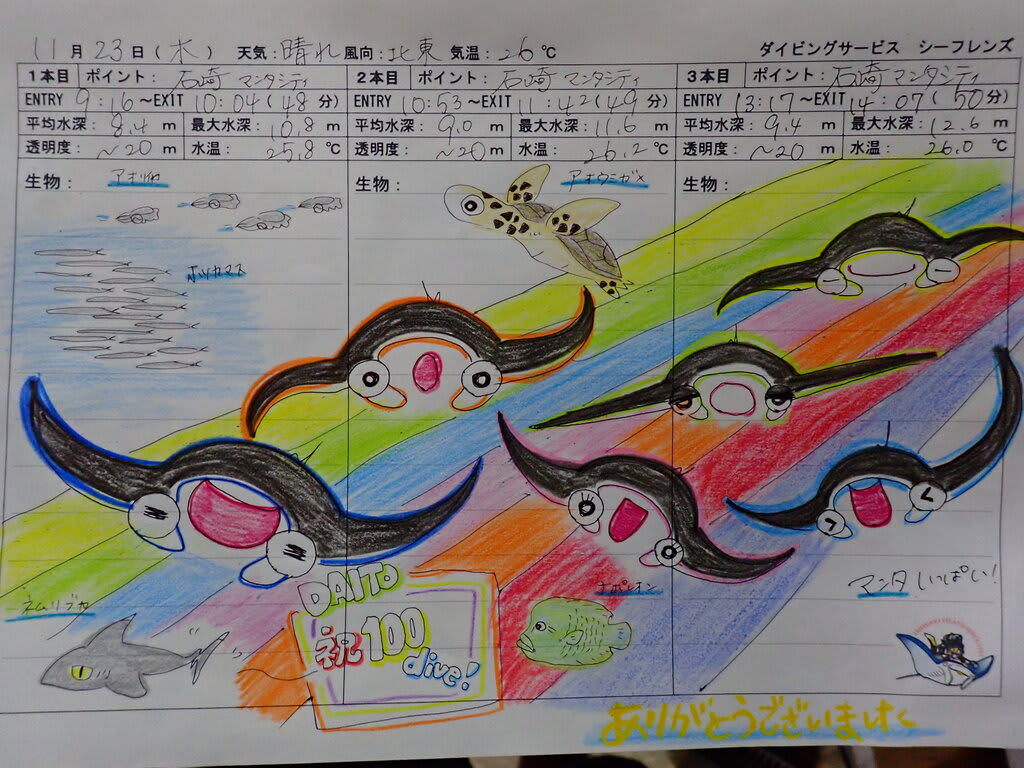 11月23日(木) 天気:晴れ 風向:北東 気温:26℃ ダイビングサービス シーフレンズ
1本目 ポイント: 石崎マンタシティ
ENTRY 9:16~EXIT 10:04(48分)
平均水深: 8.4 m 最大水深: 10.8 m
透明度: ~20 m 水温: 25.8℃
生物:
アオリイカ
ホソカマス
ネムリブカ
2本目 ポイント: 石崎マンタシティ
ENTRY 10:53~EXIT 11:42(49分)
平均水深: 9.0 m 最大水深: 11.6 m
透明度: ~20 m 水温: 26.2℃
生物:
アオウミガメ
DAITo
祝100
dive!
ナポレオン
3本目 ポイント: 石崎マンタシティ
ENTRY 13:17~EXIT 14:07(50分)
平均水深: 9.4 m 最大水深: 12.6 m
透明度: ~20 m 水温: 26.0℃
生物:
マンタいっぱい!
ありがとうございました